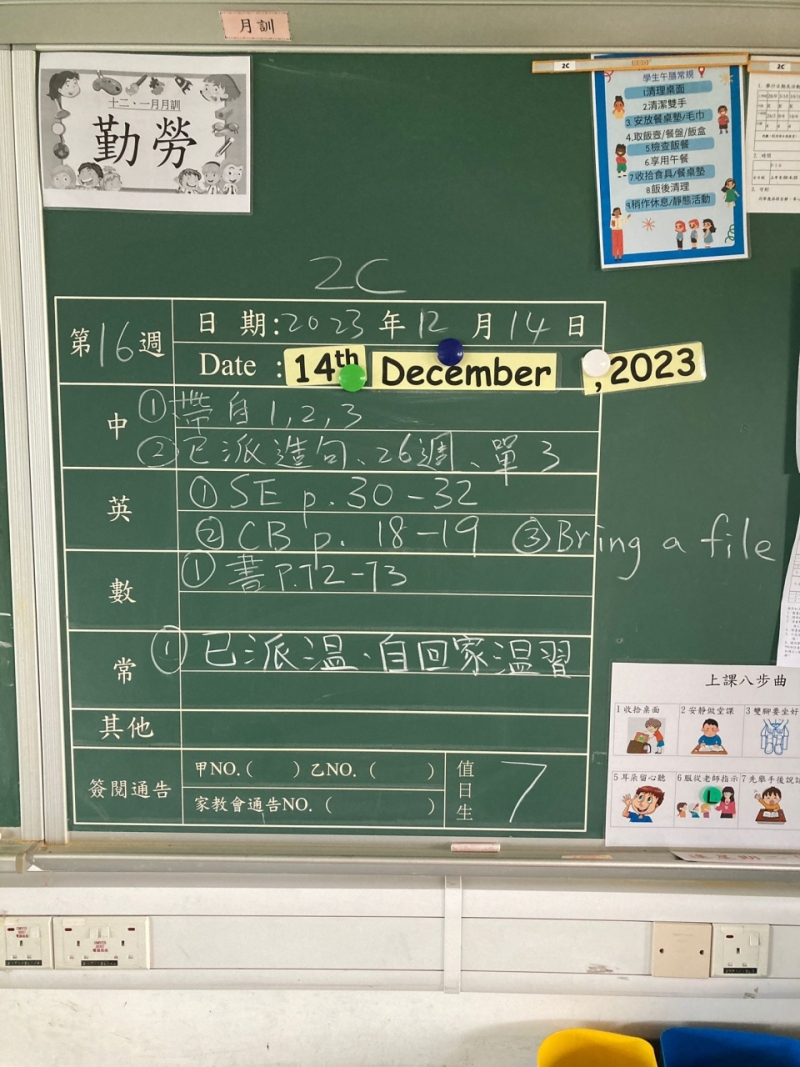 月訓
十二、一月月訓
勤勞
2C
學生午膳常規
1清理桌面
2清潔雙手
3 安放餐桌墊/毛巾
4.取飯壺/餐盤/飯盒
5檢查飯餐
6.享用午餐
7收拾食具/餐桌墊
8飯後清理
9稍作休息/靜態活動
2C
2C
第16週
日 期:2023年12月14日
Date : 14th December , 2023
中 ①帶自1,2,3
②已派造句、26週、單3
英 ①SE p.30-32
②CB p. 18-19 ③Bring a file
數 ①書P.72-73
常 ①已派溫、自回家溫習
其他
簽閱通告 甲NO.( ) 乙NO. ( )
家教會通告NO. ( )
值日生 7
上課八步曲
1 收拾桌面
2 安靜做堂課
3 雙腳要坐好
5 耳朵留心聽
6 服從老師指示
7 先舉手後說話
L